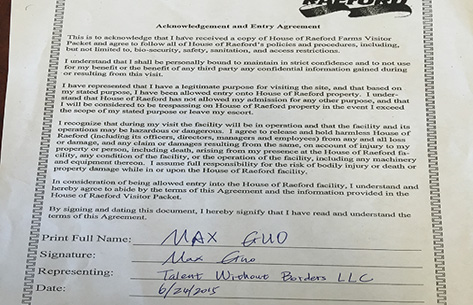 RAEFORD
Acknowledgement and Entry Agreement
This is to acknowledge that I have received a copy of House of Raeford Farms Visitor
Packet and agree to follow all of House of Raeford's policies and procedures, including,
but not limited to, bio-security, safety, sanitation, and access restrictions.
I understand that I shall be personally bound to maintain in strict confidence and to not use
for my benefit or the benefit of any third party any confidential information gained during
or resulting from this visit.
I have represented that I have a legitimate purpose for visiting the site, and that based on
my stated purpose, I have been allowed entry onto House of Raeford property. I under-
stand that House of Raeford has not allowed my admission for any other purpose, and that
I will be considered to be trespassing on House of Raeford property in the event I exceed
the scope of my stated purpose or leave my escort.
I recognize that during my visit the facility will be in operation and that the facility and its
operations may be hazardous or dangerous. I agree to release and hold harmless House of
Raeford (including its officers, directors, managers and employees) from any and all loss
or damage, and any claim or damages resulting from the same, on account of injury to my
property or person, including death, arising from my presence at the House of Raeford fa-
cility, any condition of the facility, or the operation of the facility, including any machinery
and equipment thereon. I assume full responsibility for the risk of bodily injury or death or
property damage while in or upon the House of Raeford facility.
In consideration of being allowed entry into the House of Raeford facility, I understand and
hereby agree to abide by the terms of this Agreement and the information provided in the
House of Raeford Visitor Packet.
By signing and dating this document, I hereby signify that I have read and understand the
terms of this Agreement.
Print Full Name: MAX GUO
Signature: Max Guo
Representing: Talent Without Borders LLC
Date: 6/24/2015